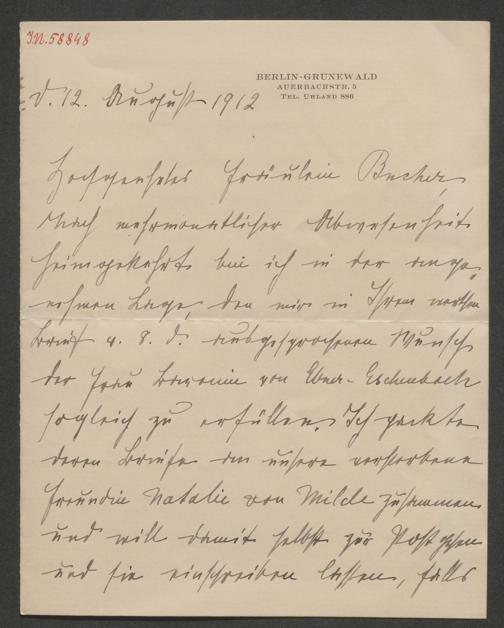 I.N. 58848
BERLIN-GRUNEWALD
AUERBACHSTR. 5
TEL. UHLAND 886
d. 12. August 1912
Hochgeehrtes Fräulein Bucher,
Nach mehrmonatlicher Abwesenheit
heimgekehrt bin ich in der ange-
nehmen Lage, den mir in Ihrem werthen
Brief v. 8. d. ausgesprochenen Wunsch
der Frau Baronin von Ebner-Eschenbach
sogleich zu erfüllen. Ich packte
deren Briefe an unsere verstorbene
Freundin Natalie von Milde zusammen
und will damit selbst zur Post gehen
und sie einschreiben lassen, falls